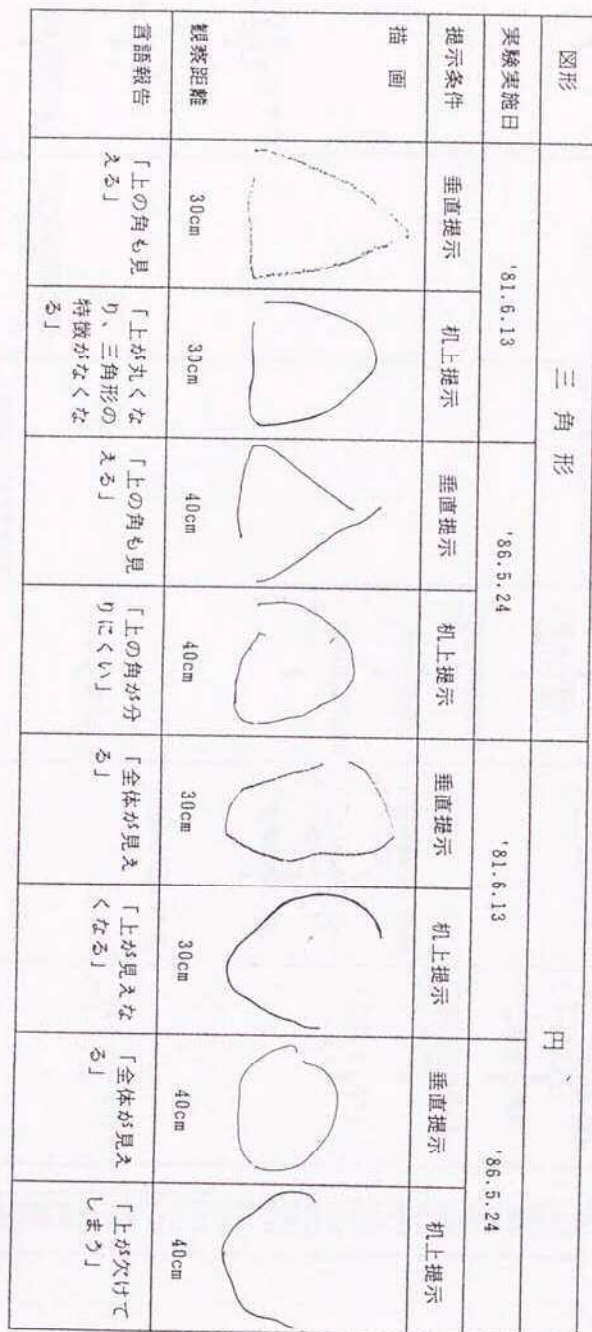 図形
三角形
円
実験実施日
'81.6.13
'86.5.24
'81.6.13
'86.5.24
提示条件
垂直提示
机上提示
垂直提示
机上提示
垂直提示
机上提示
垂直提示
机上提示
描画
観察距離
30cm
30cm
40cm
40cm
30cm
30cm
40cm
40cm
言語報告
「上の角も見
える」
「上が丸くな
り、三角形の
特徴がなくな
る」
「上の角も見
える」
「上の角が分
りにくい」
「全体が見え
る」
「上が見えな
くなる」
「全体が見え
る」
「上が欠けて
しまう」